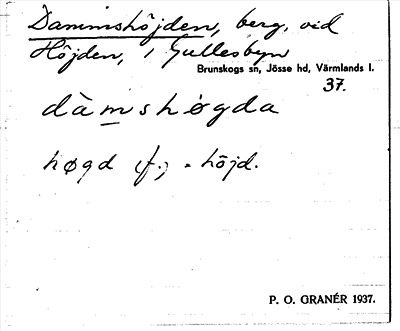 Dammshöjden, berg, vid
Höjden, i Gullesbyn
Brunskogs sn, Jösse hd, Värmlands l.
37.
dàmshøgda
høgd f.; = höjd.
P. O. GRANÉR 1937.